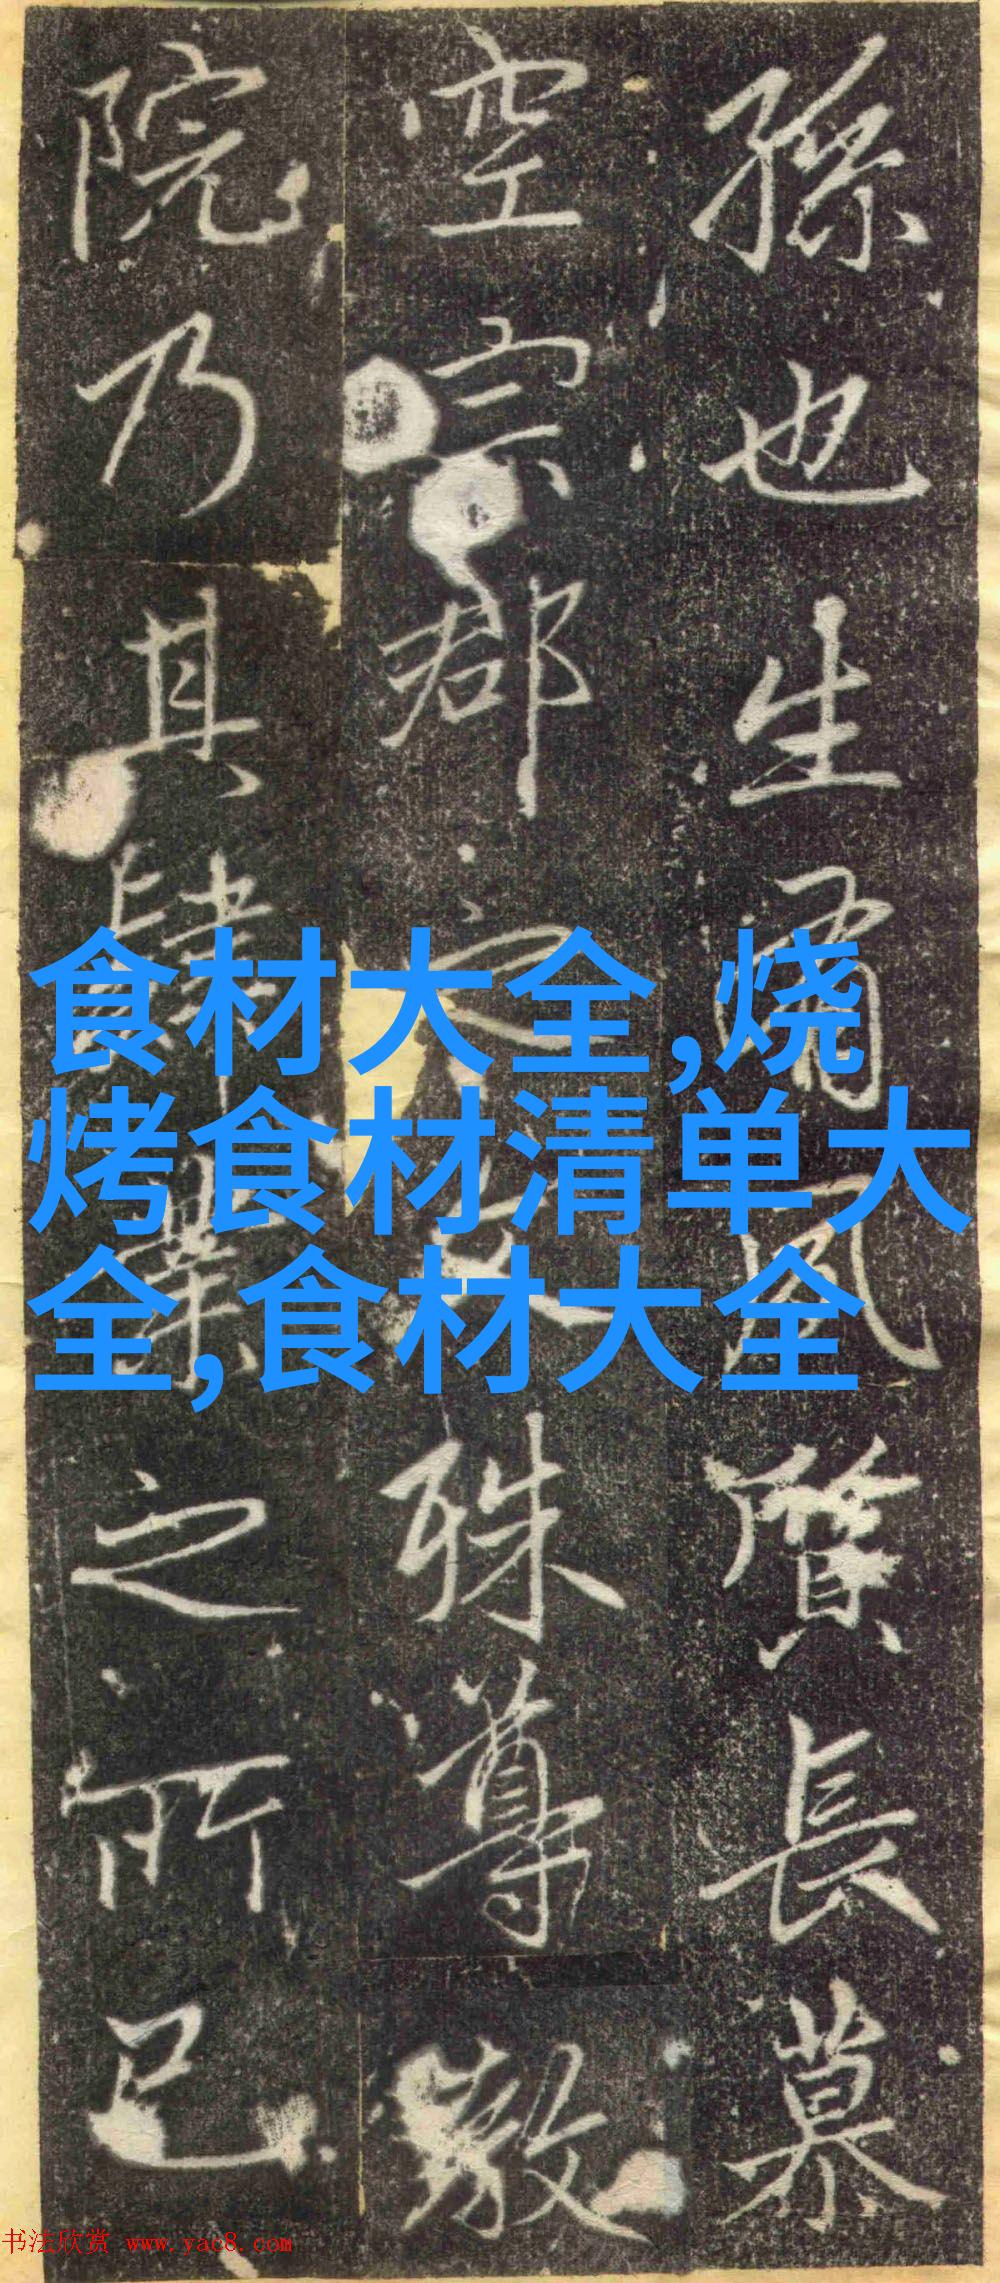 孫也生風質長慕
空宗郡之文殊尊
院乃其肄之所已
食材大全,烧
烤食材清单大
全,食材大全
书法欣赏 www.yac8.com